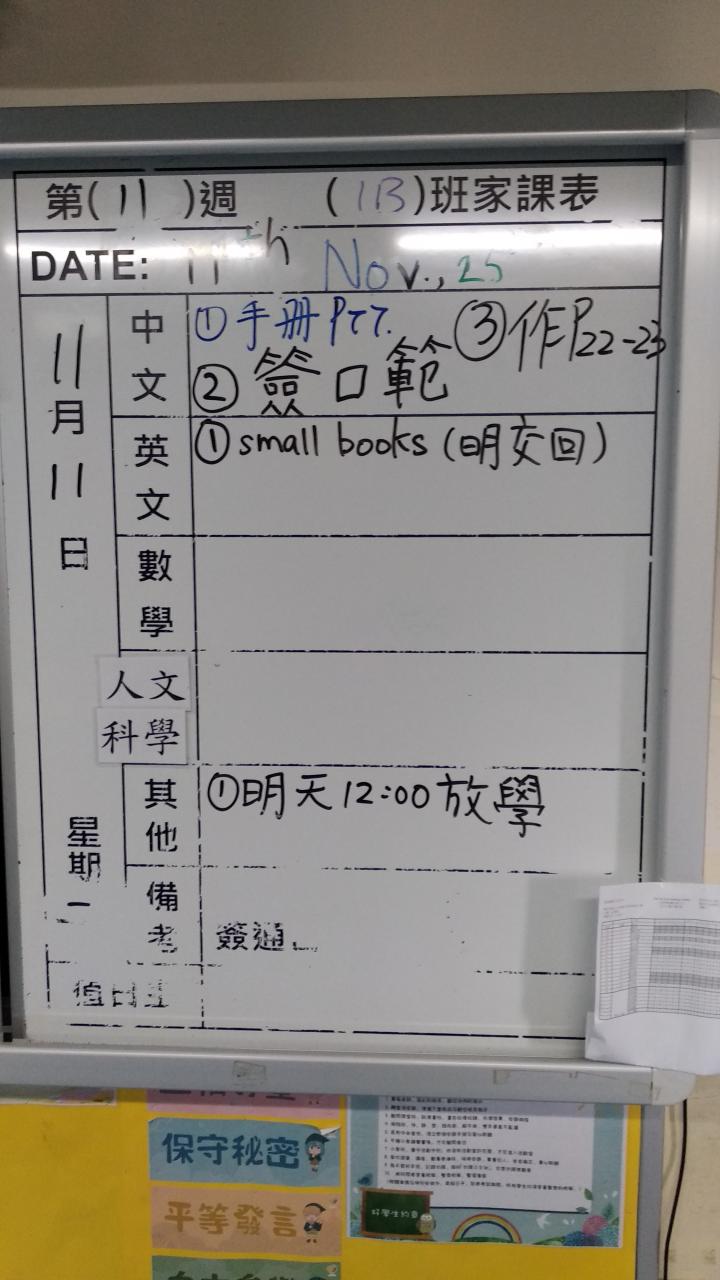 第(11)週 (1B)班家課表
DATE: 11th Nov., 25
11月11日
星期一
中文
①手冊P77.
②簽口範
③作P22-23
英文
①small books (明交回)
數學
人文
科學
其他
①明天12:00放學
備考
簽通
值日生
保守秘密
平等發言
好學生約章